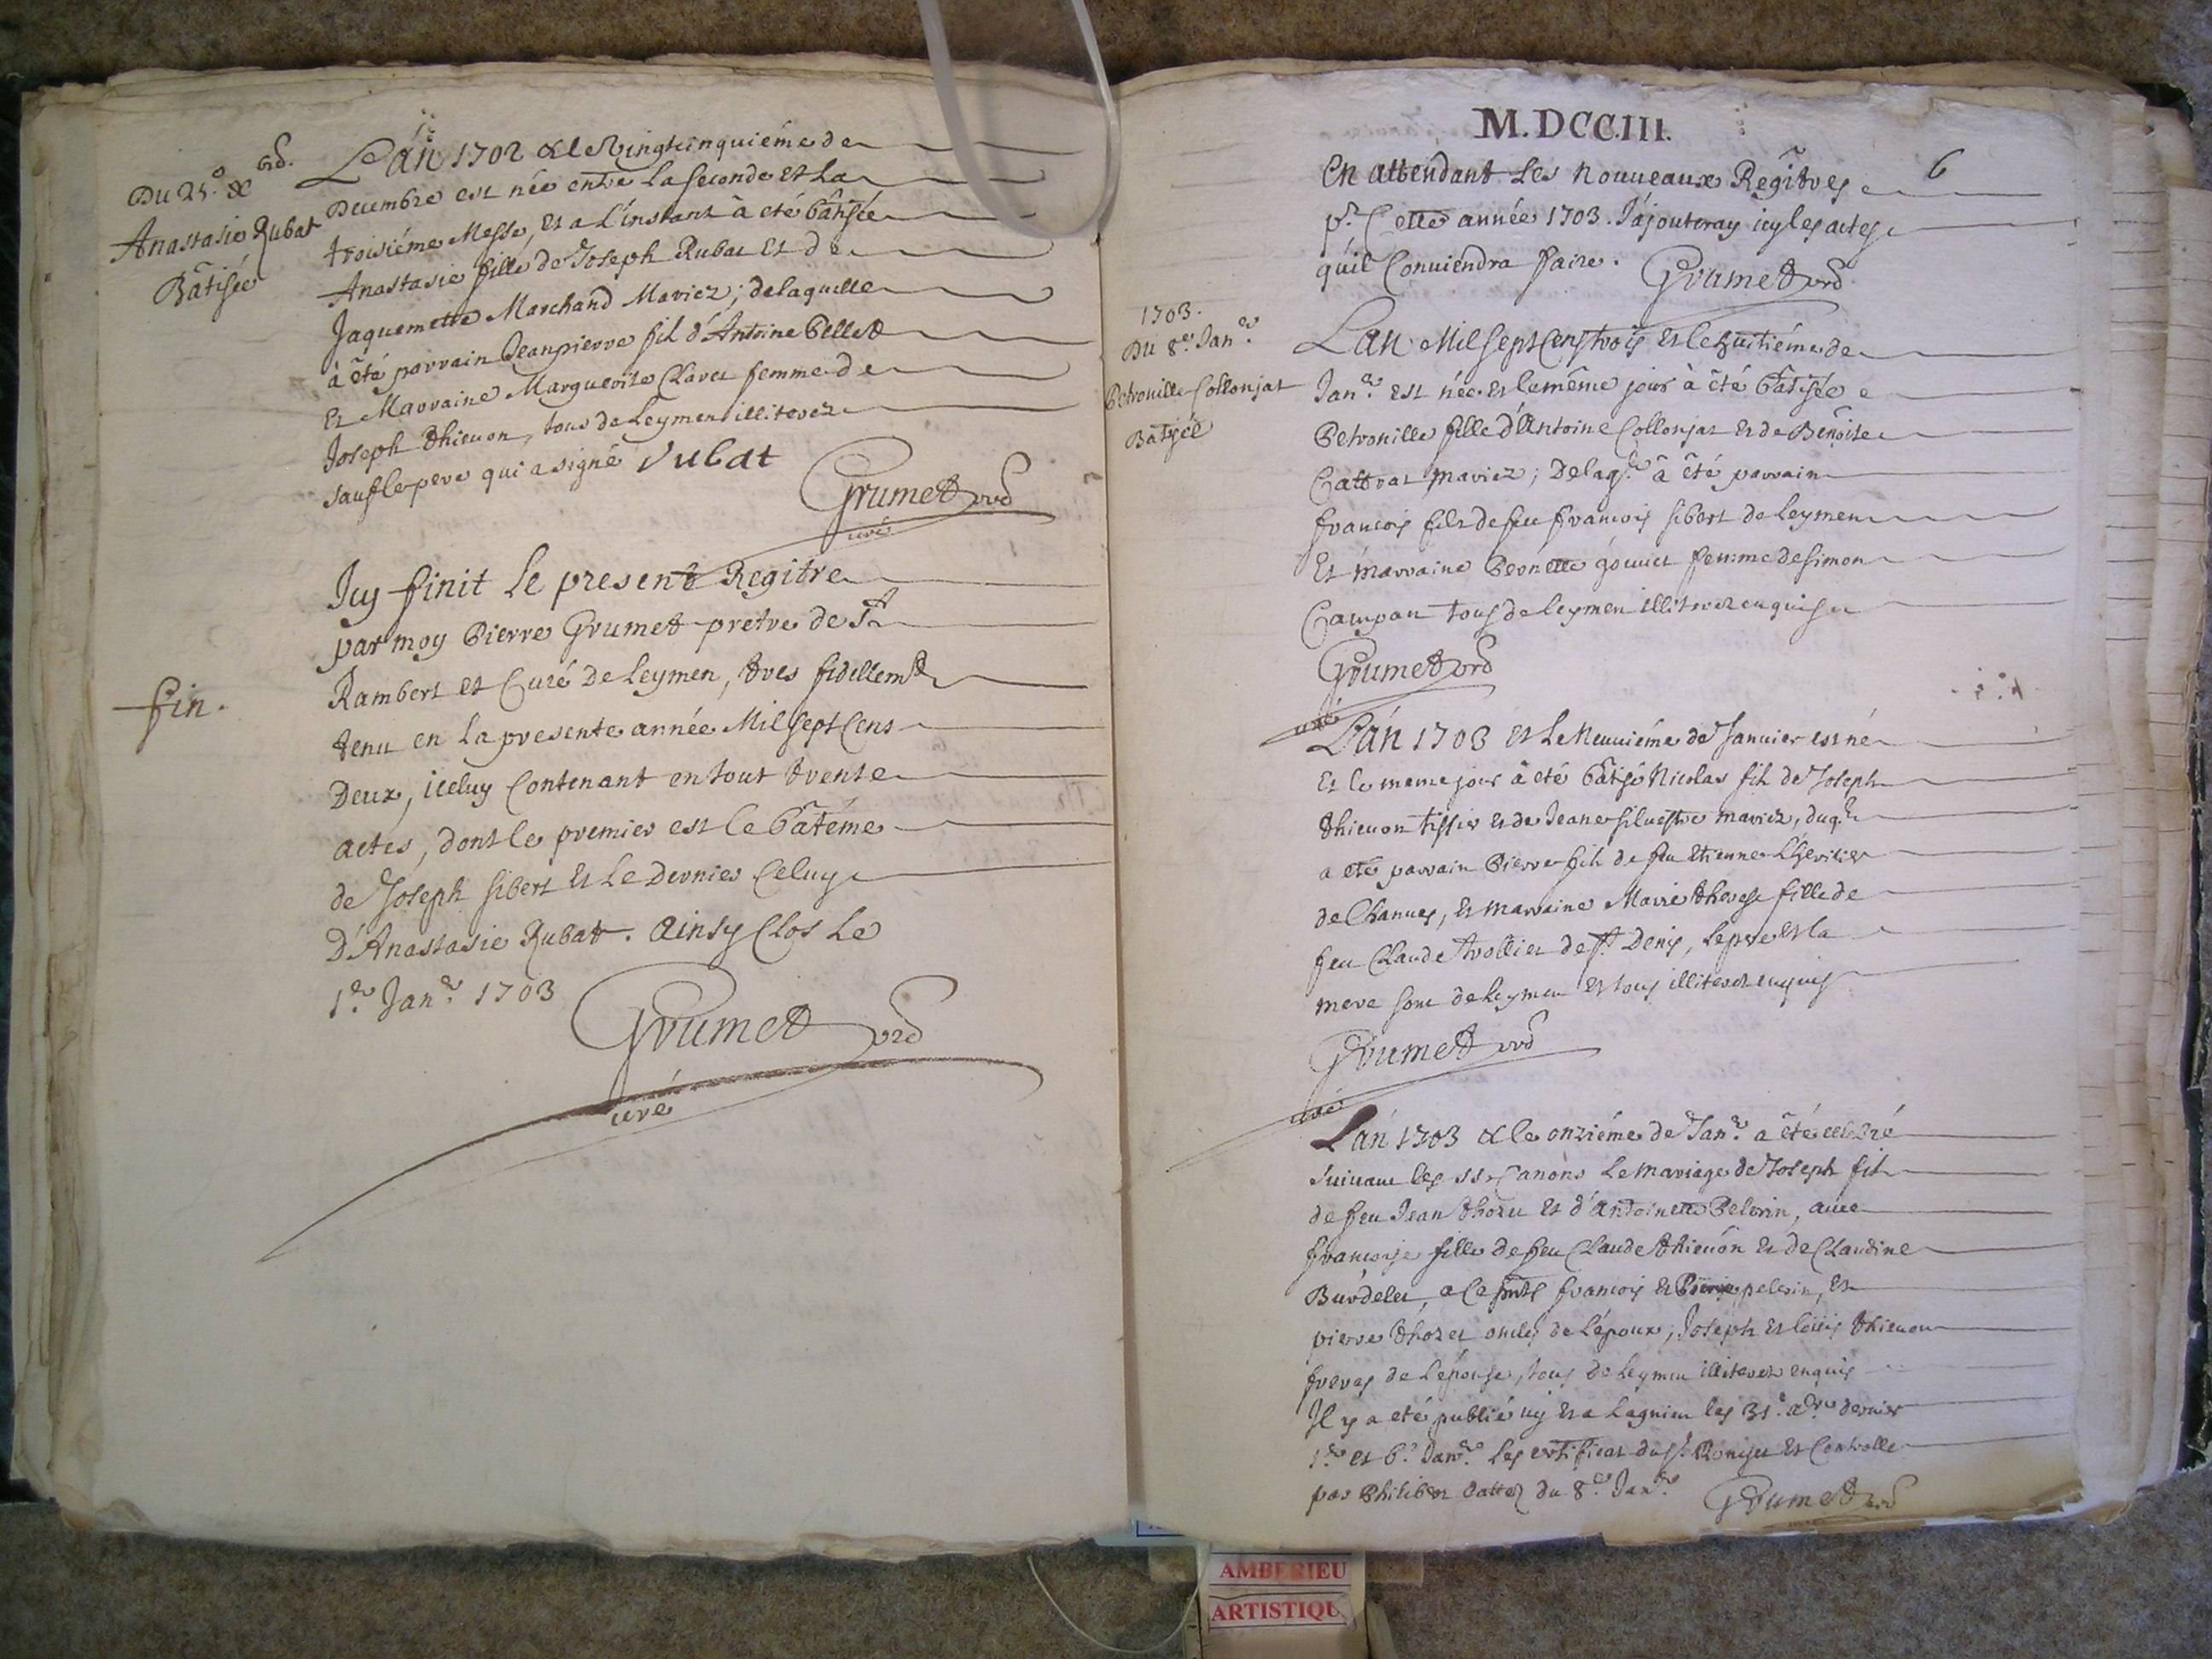 Du 25.e Xbre.
Anastasie Rubat
Bâtisée
L'an 1702 & le Vingtcinquiéme de
Decembre est née entre la seconde et la
troisiéme Messe, et a l'instant à eté bâtisée
Anastasie fille de Joseph Rubat et de
Jaquemette Marchand Mariez; de laquelle
à êté parrain Jeanpierre fils d'Antoine Pellet
et Marraine Marguerite Clavet femme de
Joseph Thievon, tous de Leymen illiterez
sauf le pere qui a signé Rubat
Grumet prd
curé
Icy finit le present Regitre
par moy Pierre Grumet pretre de St
Rambert et Curé de Leymen, tres fidellemt
fin.
tenu en la presente année Mil sept Cens
Deux, iceluy Contenant en tout trente
actes, dont le premier est le bâtéme
de Joseph Sibert et le Dernier Celuy
D'Anastasie Rubat. Ainsy Clos le
1.er Jan.er 1703
Grumet prd
curé
M.DCC.III.
6
En attendant les nouveaux Regîtres
pr. Cette année 1703. J'ajouteray icy les actes
qu'il Conviendra faire. Grumet prd
1703.
Du 8.e Jan.er
Petronille Collonjat
Batisée
L'an Mil sept Cens trois et le huitiéme de
Jan.er est née et le même jour à êté bâtisée
Petronille fille d'Antoine Collonjat et de Benoite
Cattrat mariez; de laq.le à êté parrain
francois fils de feu francois Sibert de Leymen
Et marraine Pernette gouvet femme de Simon
Campan tous de Leymen illiterez enquis
Grumet prd
curé
L'an 1703 et le Neuviéme de Janvier est né
et le meme jour à eté bâtisé Nicolas fils de Joseph
Thievon tissier et de Jeane Silvestre mariez, duq.l
a eté parrain Pierre fils de feu Etienne
de Chanves, et marraine Marie Therese fille de
feu Claude Trollier de St. Denis, le pere et la
mere sont de Leymen et tous illiterez enquis
Grumet prd
curé
L'an 1703 & le onziéme de Jan.er a êté celebré
suivant les SS. Canons le mariage de Joseph fils
de feu Jean Thozet et d'Antoinette Pelerin, avec
francoise fille de feu Claude Thievon et de Claudine
Burdelet, a ce pnts francois et Pierre pelerin, et
pierre Thozet oncles de l'époux; Joseph et loüis Thievon
freres de l'épouse, tous de Leymen illiterez enquis
Il y a eté publié icy et a Lagnieu les 31.e Xbre dernier
1.er et 6.e Janer. les certificat du Sr. et Controlle
par Philibert dattez du 8.e Jan.er Grumet prd
AMBERIEU
ARTISTIQU